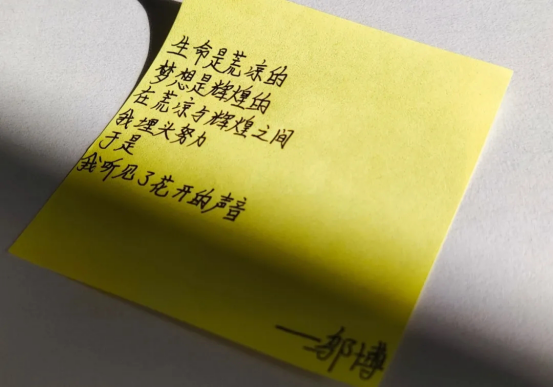 生命是荒凉的
梦想是辉煌的
在荒凉与辉煌之间
我埋头努力
于是
我听见了花开的声音
——邬博